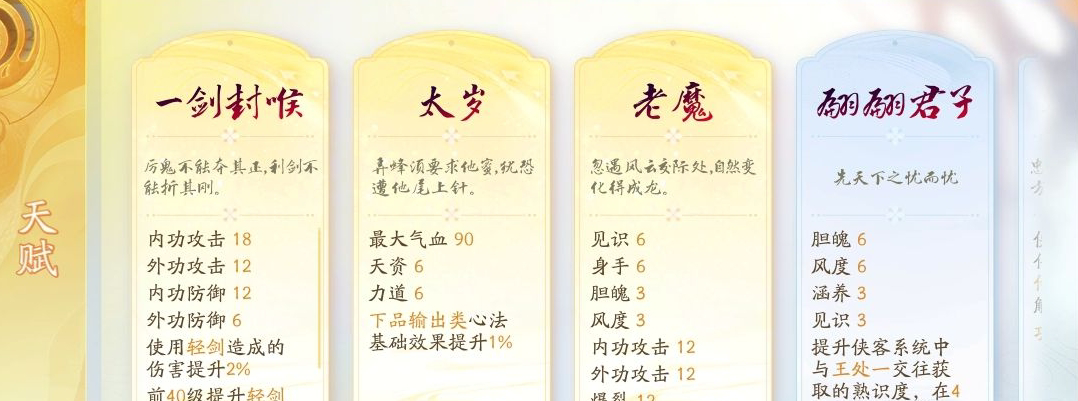 天赋
一剑封喉
厉鬼不能夺其正,利剑不
能折其刚。
内功攻击 18
外功攻击 12
内功防御 12
外功防御 6
使用轻剑造成的
伤害提升2%
前40级提升轻剑
太岁
弄蜂须要求他蜜,犹恐
遭他尾上针。
最大气血 90
天资 6
力道 6
下品输出类心法
基础效果提升1%
老魔
忽遇风云交际处,自然变
化得成龙。
见识 6
身手 6
胆魄 3
风度 3
内功攻击 12
外功攻击 12
爆裂 12
翩翩君子
先天下之忧而忧
胆魄 6
风度 6
涵养 3
见识 3
提升侠客系统中
与王处一交往获
取的熟识度，在4